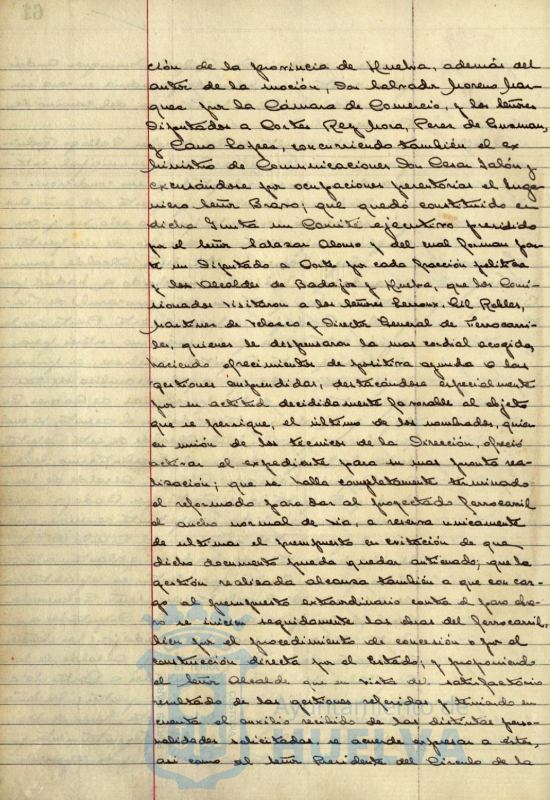 ción de la provincia de Huelva, además del
autor de la moción, Don Salvador Moreno Mar-
quez por la Cámara de Comercio, y los señores
Diputados a Cortes Rey Mora, Perez de Guzman,
y Cano Lopez, concurriendo también el ex
Ministro de Comunicaciones Don Cesar Jalón y
excusándose por ocupaciones perentorias el Inge-
niero Señor Bravo; que quedó constituido en
dicha Junta un Comité ejecutivo presidido
por el señor Salazar Alonso y del cual forman par-
te un Diputado a Cortes por cada fracción politica
y los Alcaldes de Badajoz y Huelva, que los Comi-
sionados visitaron a los señores Lerroux, Gil Robles,
Martinez de Velasco y Director General de Ferrocarri-
les, quienes le dispensaron la mas cordial acogida,
haciendo ofrecimientos de positiva ayuda a las
gestiones emprendidas, destacándose especialmente
por su actitud decididamente favorable al objeto
que se persigue, el último de los nombrados, quien
en unión de los tecnicos de la Dirección, ofreció
activar el expediente para su mas pronta rea-
lización; que se halla completamente terminado
el reformado para dar al proyectado ferrocarril
el ancho normal de via, a reserva unicamente
de ultimar el presupuesto en evitación de que
dicho documento pueda quedar anticuado; que la
gestión realizada alcanza también a que con car-
go al presupuesto extraordinario contra el paro obre-
ro se inicien seguidamente las obras del ferrocarril,
bien por el procedimiento de concesión o por el
construcción directa por el Estado; y proponiendo
el señor Alcalde que en vista del satisfactorio
resultado de las gestiones referidas y teniendo en
cuenta el auxilio recibido de las distintas perso-
nalidades solicitadas se acuerde expresar a éstas,
asi como al señor Presidente del Circulo de la
Ayuntamiento de
HUELVA